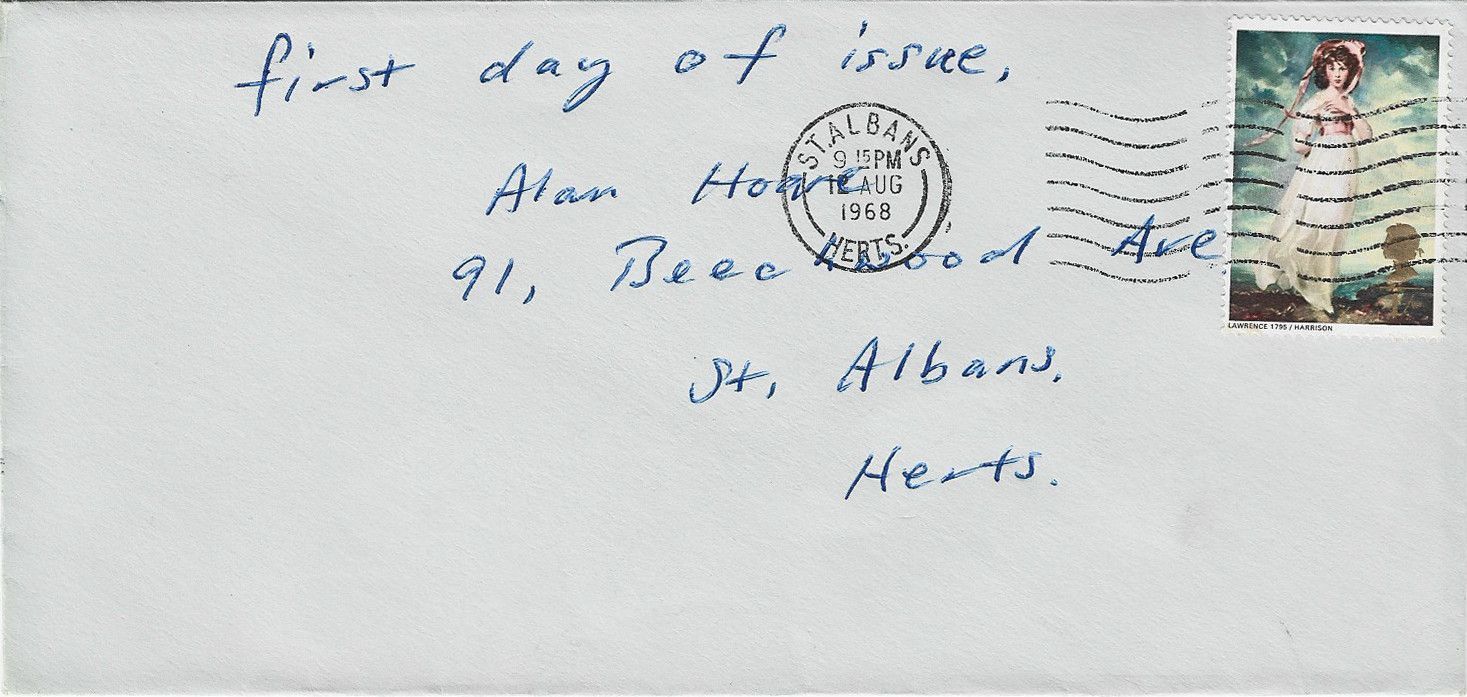 first day of issue,
ST. ALBANS
9 15 PM
12 AUG
1968
HERTS.
Alan Hoare
91, Beechwood Ave
St, Albans,
Herts.
LAWRENCE 1795 / HARRISON